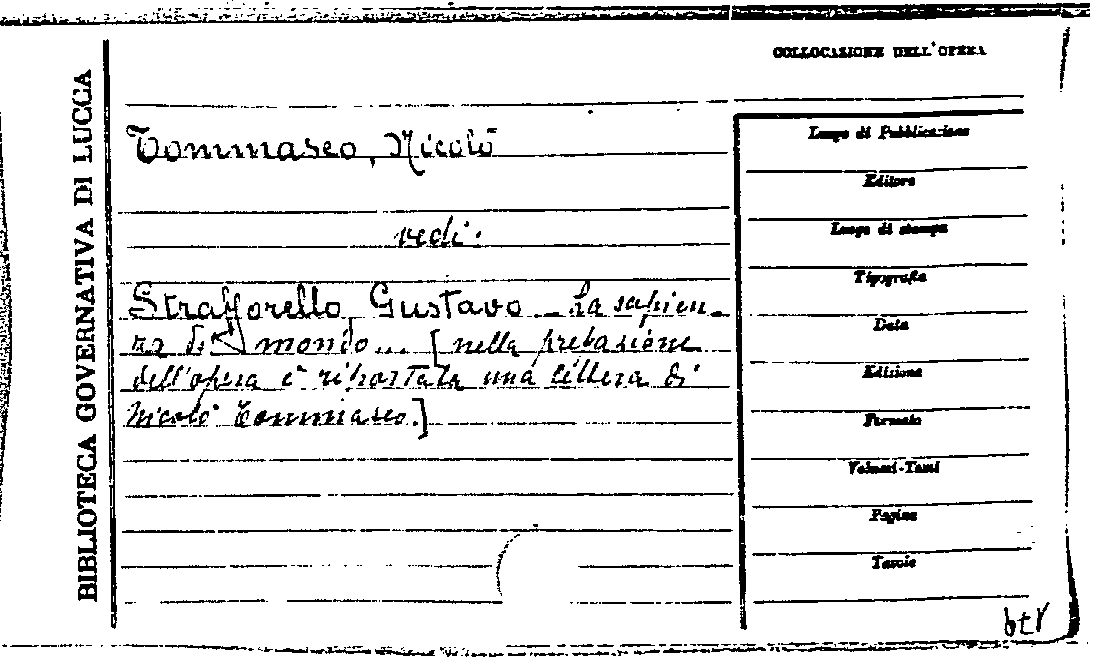 BIBLIOTECA GOVERNATIVA DI LUCCA
COLLOCAZIONE DELL'OPERA
Tommaseo, Nicolò
vedi:
Strafforello, Gustavo - La sapien-
za del mondo... [nella prefazione
dell'opera è riportata una lettera di
Nicolò Tommaseo.]
Luogo di Pubblicazione
Editore
Luogo di stampa
Tipografia
Data
Edizione
Formato
Volumi-Tomi
Pagine
Tavole